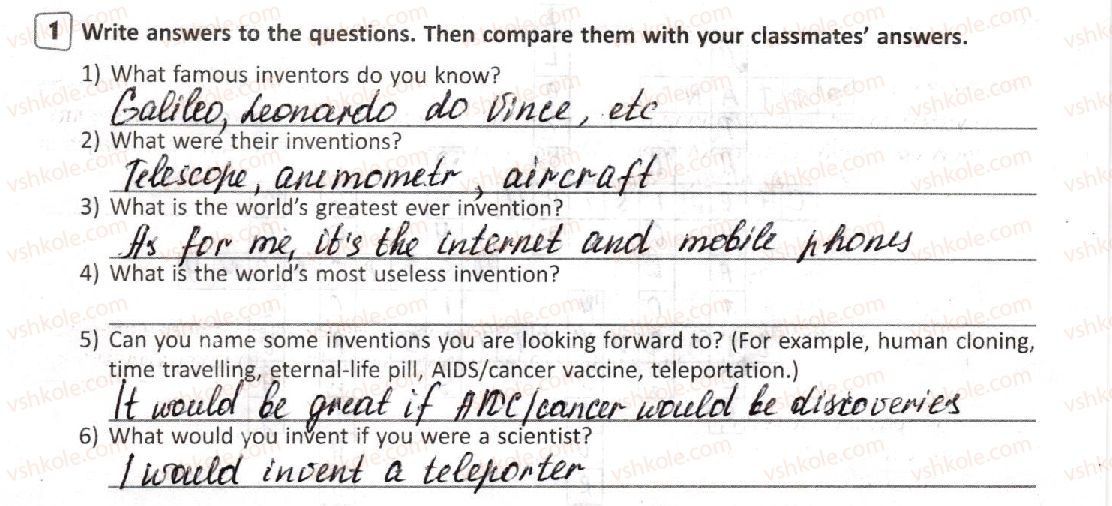 1 Write answers to the questions. Then compare them with your classmates' answers.
1) What famous inventors do you know?
Galileo, Leonardo do Vince, etc
2) What were their inventions?
Telescope, anemometr, aircraft
3) What is the world's greatest ever invention?
As for me, it's the internet and mobile phones
4) What is the world's most useless invention?
5) Can you name some inventions you are looking forward to? (For example, human cloning,
time travelling, eternal-life pill, AIDS/cancer vaccine, teleportation.)
It would be great if AIDC/cancer would be discoveries
6) What would you invent if you were a scientist?
I would invent a teleporter
vshkole.com